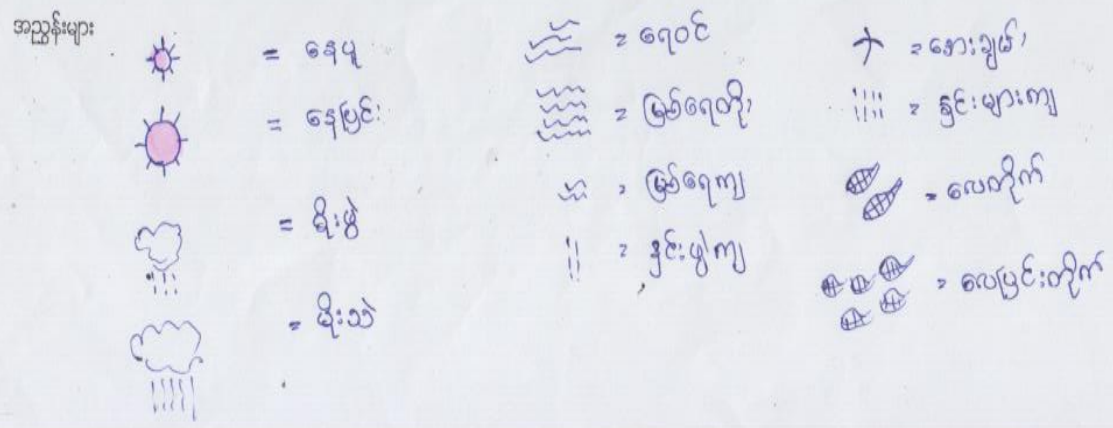 အညွှန်းများ
= နေပူ
= နေပြင်း
= မိုးဖွဲ
= မိုးသဲ
= ရေဝင်
= မြစ်ရေတိုး
= မြစ်ရေကျ
= နှင်းဖွဲကျ
= အေးချမ်း
= နှင်းများကျ
= လေတိုက်
= လေပြင်းတိုက်